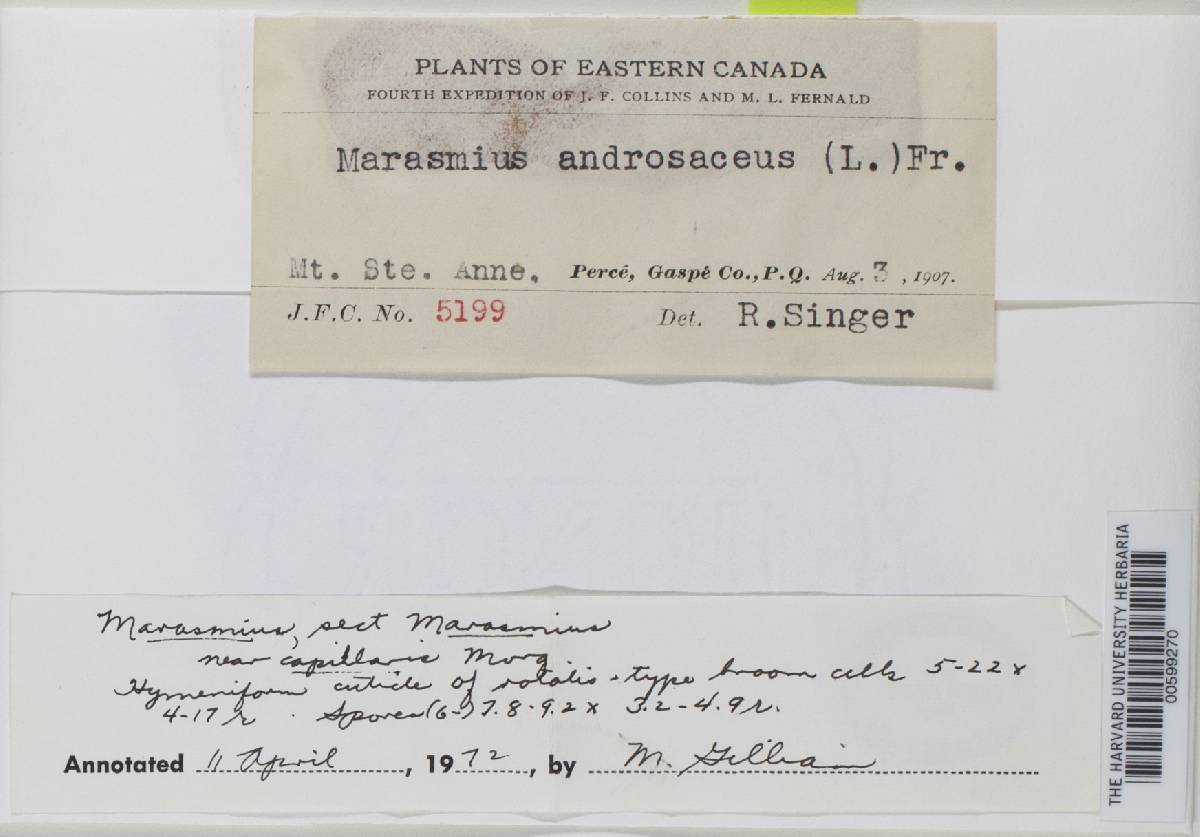 PLANTS OF EASTERN CANADA
FOURTH EXPEDITION OF J. F. COLLINS AND M. L. FERNALD
Marasmius androsaceus (L.)Fr.
Mt. Ste. Anne. Percé, Gaspé Co., P.Q. Aug. 3, 1907.
J.F.C. No. 5199 Det. R.Singer
Marasmius, sect Marasmius
near capillaris Morg.
Hymeniform cuticle of rotalis-type broom cells 5-22 x
4-17 μ. Spores (6-) 7.8-9.2 x 3.2-4.9 μ.
Annotated 11 April, 1972, by M. Gilliam
THE HARVARD UNIVERSITY HERBARIA
00599270